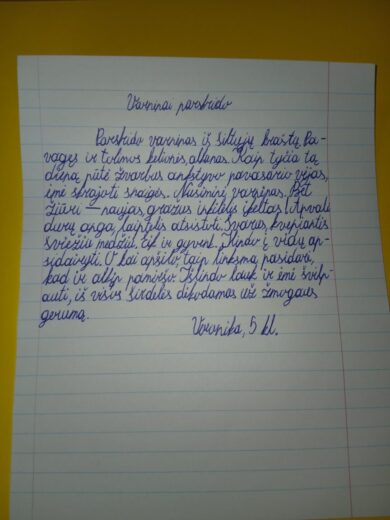 Varnėnai parskrido
Parskrido varnėnas iš šiltųjų kraštų. Pa-
vargęs iš tolimos kelionės, alkanas. Kaip tyčia tą
dieną pūtė žvarbus ankstyvo pavasario vėjas,
ėmė skrajoti snaigės. Nusiminė varnėnas. Bet
žiūri — naujas, gražus inkilėlis įkeltas! Apvali
durų anga, laiptelis atsistoti. Švarus, kvepiantis
šviežiu medžiu, tik ir gyvent. Lindo į vidų ap-
sidairyti. O kai apšilo, taip linksma pasidarė,
kad ir alkį pamiršo. Išlindo lauk ir ėmė švilp-
auti, iš visos širdelės dėkodamas už žmogaus
gerumą.
Veronika, 5 kl.